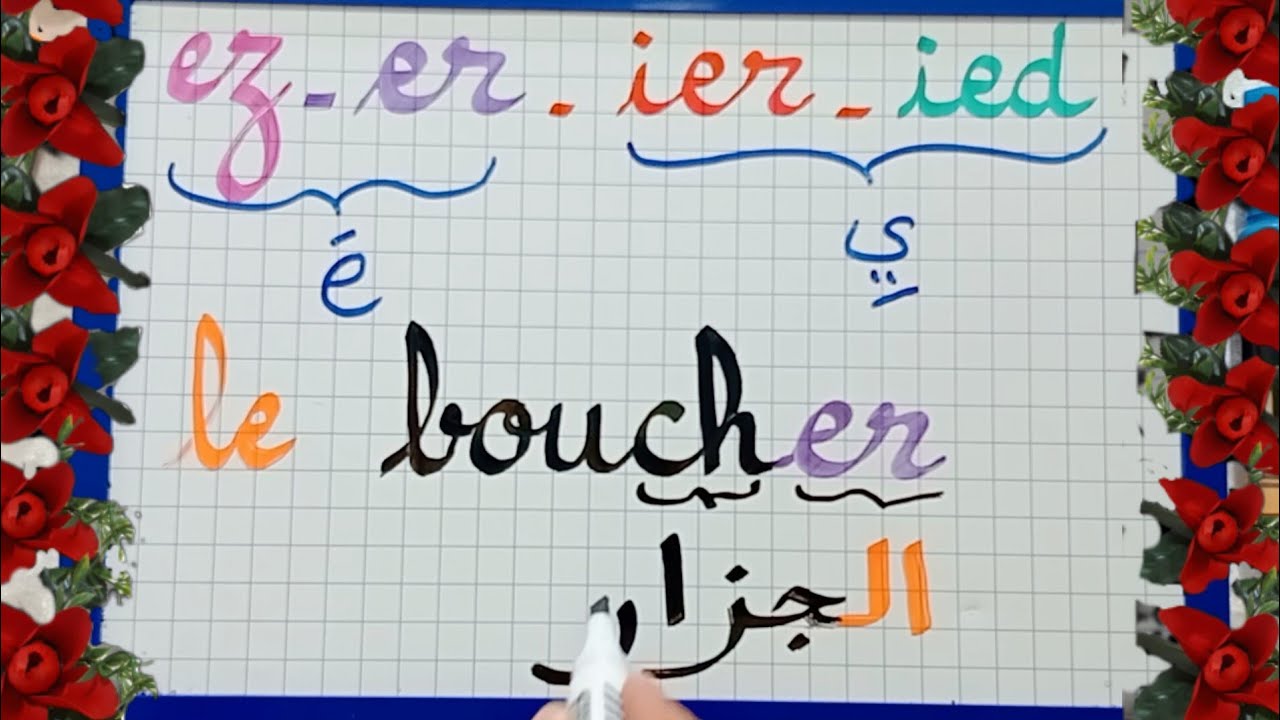 ez - er - ier - ied
é يِ
le boucher
الجزار